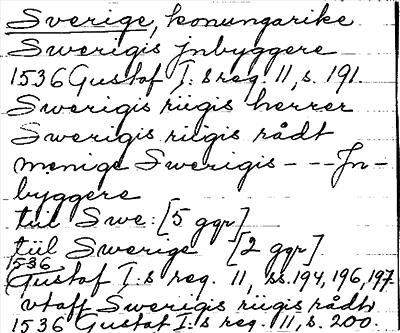 Sverige, konungarike
Swerigis jnbyggere
1536 Gustaf I:s reg. 11, s. 191
Swerigis riigis herrer
Swerigis riigis rådt
menige Swerigis - - - Jn-
byggere
tiil Swe: [5 ggr]
tiil Swerige [2 ggr]
1536
Gustaf I:s reg. 11, ss. 194, 196, 197
vtaff Swerigis riigis rådt
1536 Gustaf I:s reg. 11, s. 200